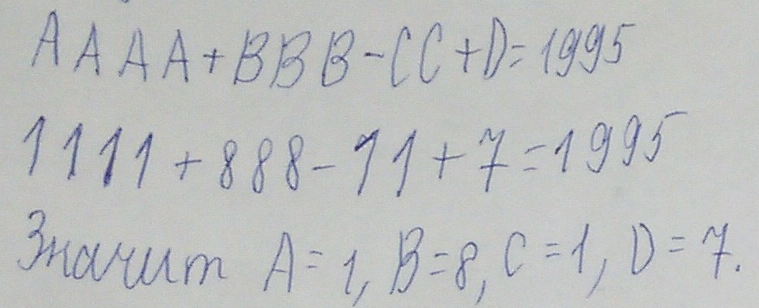 AAAA+BBB-CC+D=1995
1111+888-11+7=1995
Значит A=1, B=8, C=1, D=7.